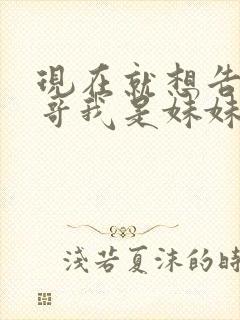 現在就想告
哥我是妹妹
淺若夏沫的時